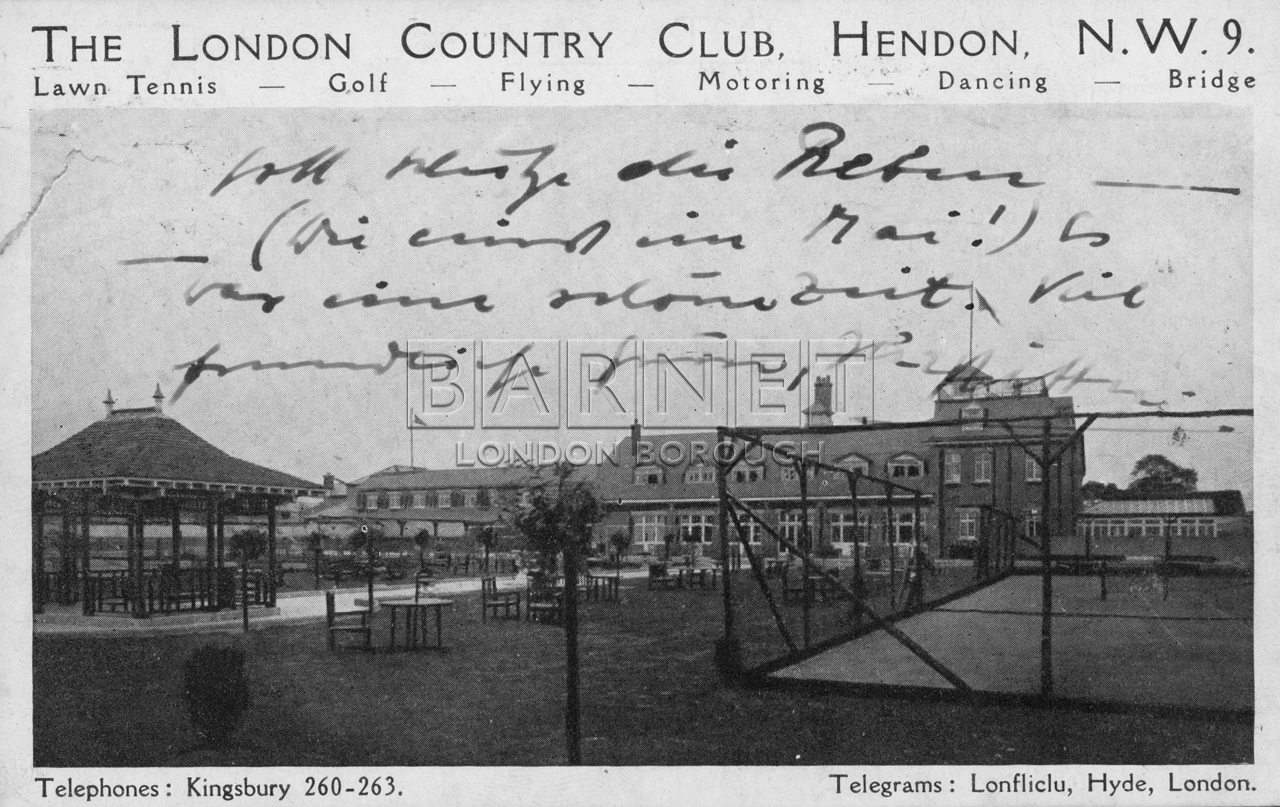 THE LONDON COUNTRY CLUB, HENDON, N.W.9.
Lawn Tennis — Golf — Flying — Motoring — Dancing — Bridge
Gott schütze die Reben —
— (Wie einst im Mai!) Es
war eine schöne Zeit. Viel
BARNET
LONDON BOROUGH
Telephones: Kingsbury 260-263.
Telegrams: Lonfliclu, Hyde, London.